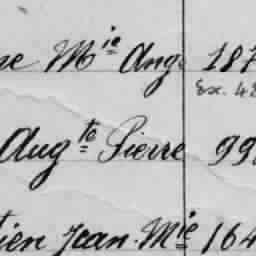 se Mie Ang. 187
Ex. 48
Augte Pierre 99
ien Jean-Mie 164